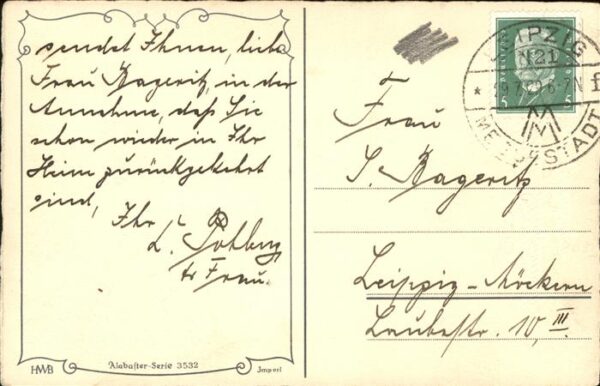 sendet Ihnen, liebe
Frau Bageritz, in der
Annahme, daß Sie
schon wieder in Ihr
Heim zurückgekehrt
sind,
Ihr
L.
Frau.
HWB
Alabaster-Serie 3532
Import
LEIPZIG
N21
6-7N
f
MESSESTADT
5
5
Frau
Bageritz
Leipzig-Möckern
10, III.